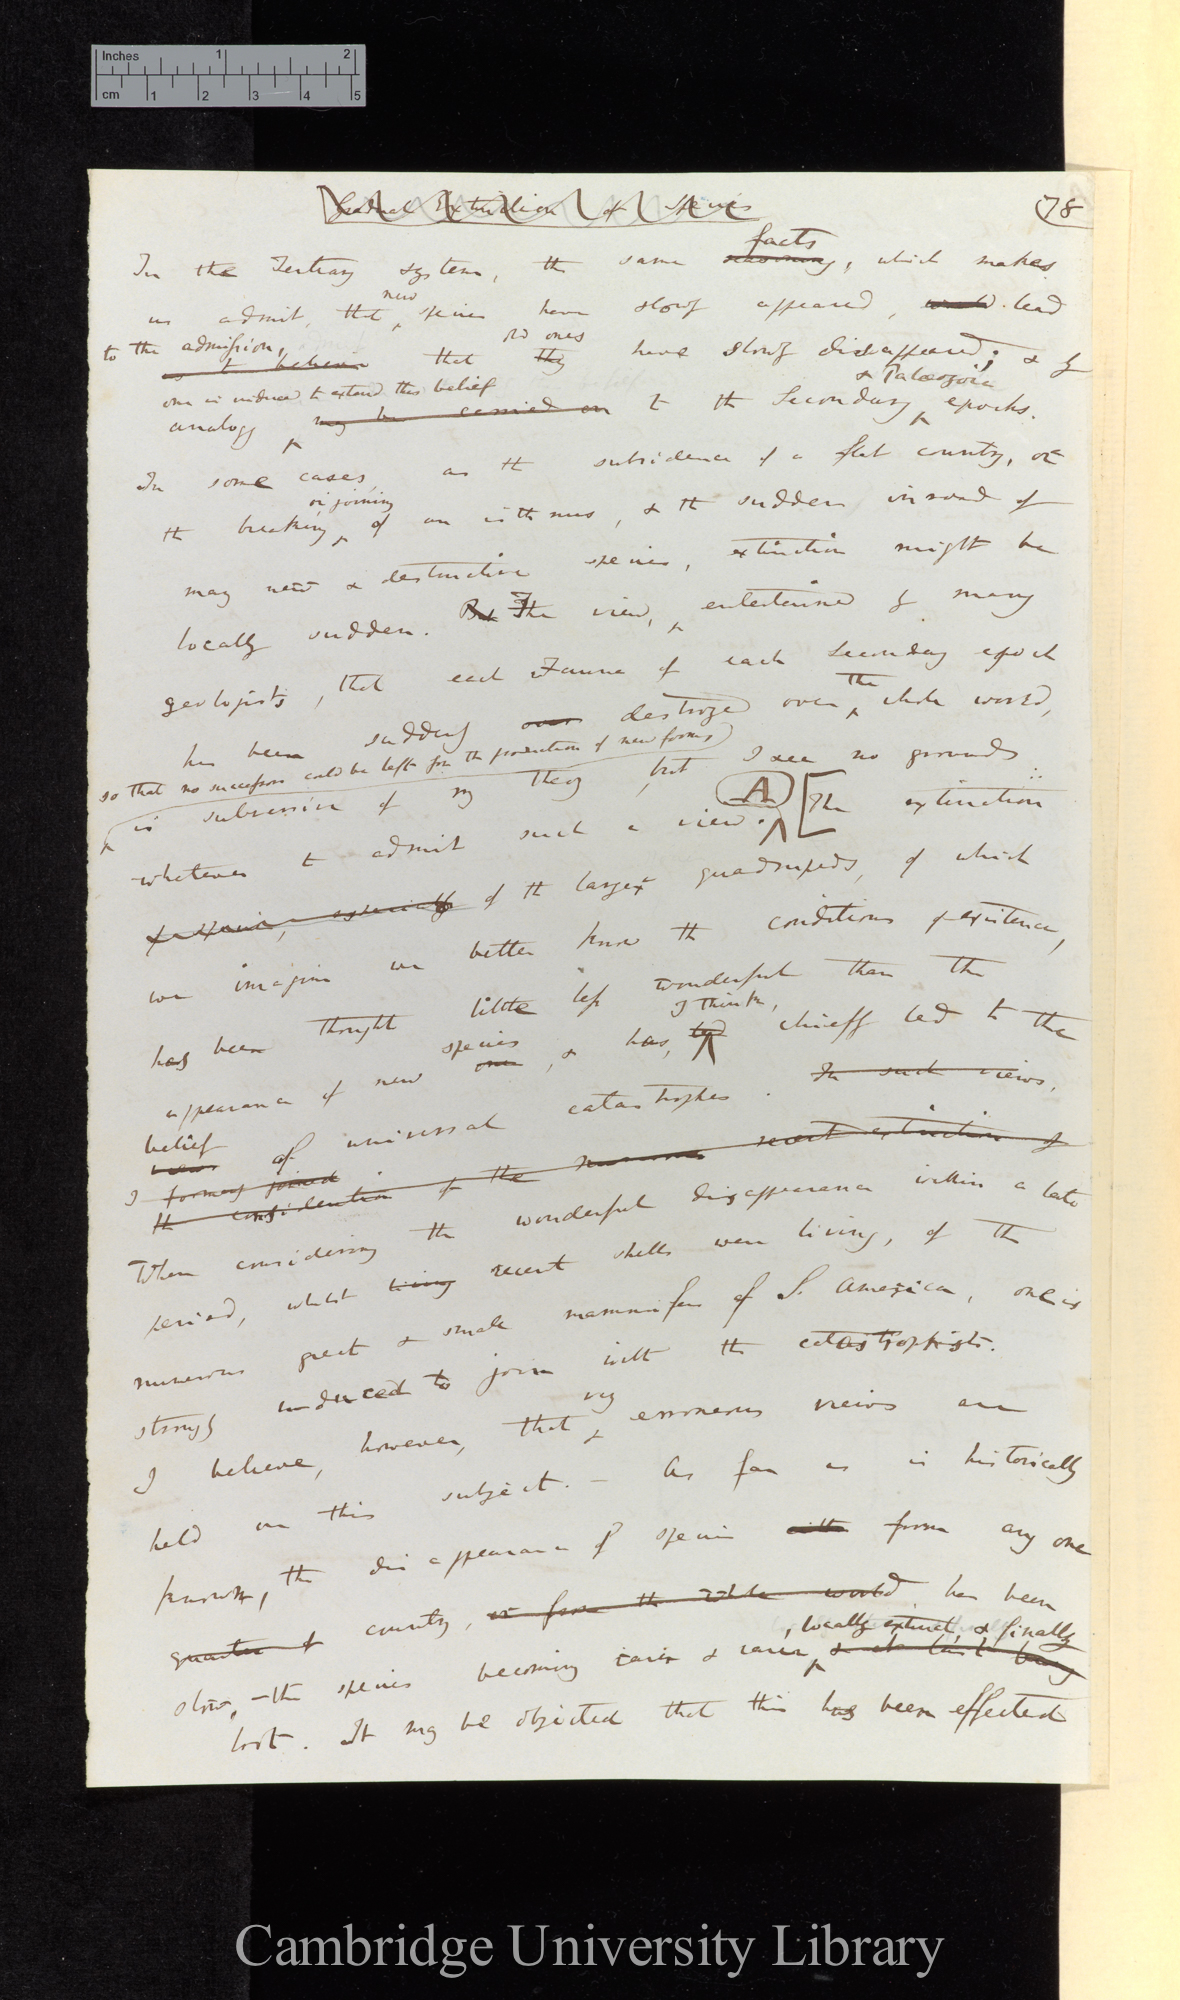 Inches 1 2
cm 1 2 3 4 5
Gradual Extinction of species
78
facts
In the Tertiary system, the same reasoning, which makes
new
us admit, that species have slowly appeared, would lead
to the admission, old ones
as to believe that they have slowly disappeared; & by
one is induced to extend this belief & Palæozoic
analogy may be carried on to the Secondary epochs.
In some cases, as the subsidence of a flat country, or
or joining
the breaking of an isthmus, & the sudden inroad of
many new & destructive species, extinction might be
locally sudden. But The view, entertained by many
geologists, that each Fauna of each Secondary epoch
the
has been suddenly over destroyed over whole world,
so that no successors could be left for the production of new forms
is subversive of my theory, but I see no grounds
A
whatever to admit such a view. [The extinction
especially of the larger quadrupeds, of which
we imagine we better know the conditions of existence,
has been thought little less wonderful than the
species I think,
appearance of new ones, & has, led chiefly led to the
belief
views of universal catastrophes. In such views,
I formerly joined
the consideration of the numerous recent extinction of
When considering the wonderful disappearance within a late
period, whilst living recent shells were living, of the
numerous great & small mammifers of S. America, one is
strongly induced to join with the catastrophists.
very
I believe, however, that erroneous views are
held on this subject. — As far as is historically
known, the disappearance of species with from any one
quarter of country, or from the whole world, has been
, locally extinct, & finally
slow, —the species becoming rarer & rarer, & at last being
lost. It may be objected that this has been effected
Cambridge University Library